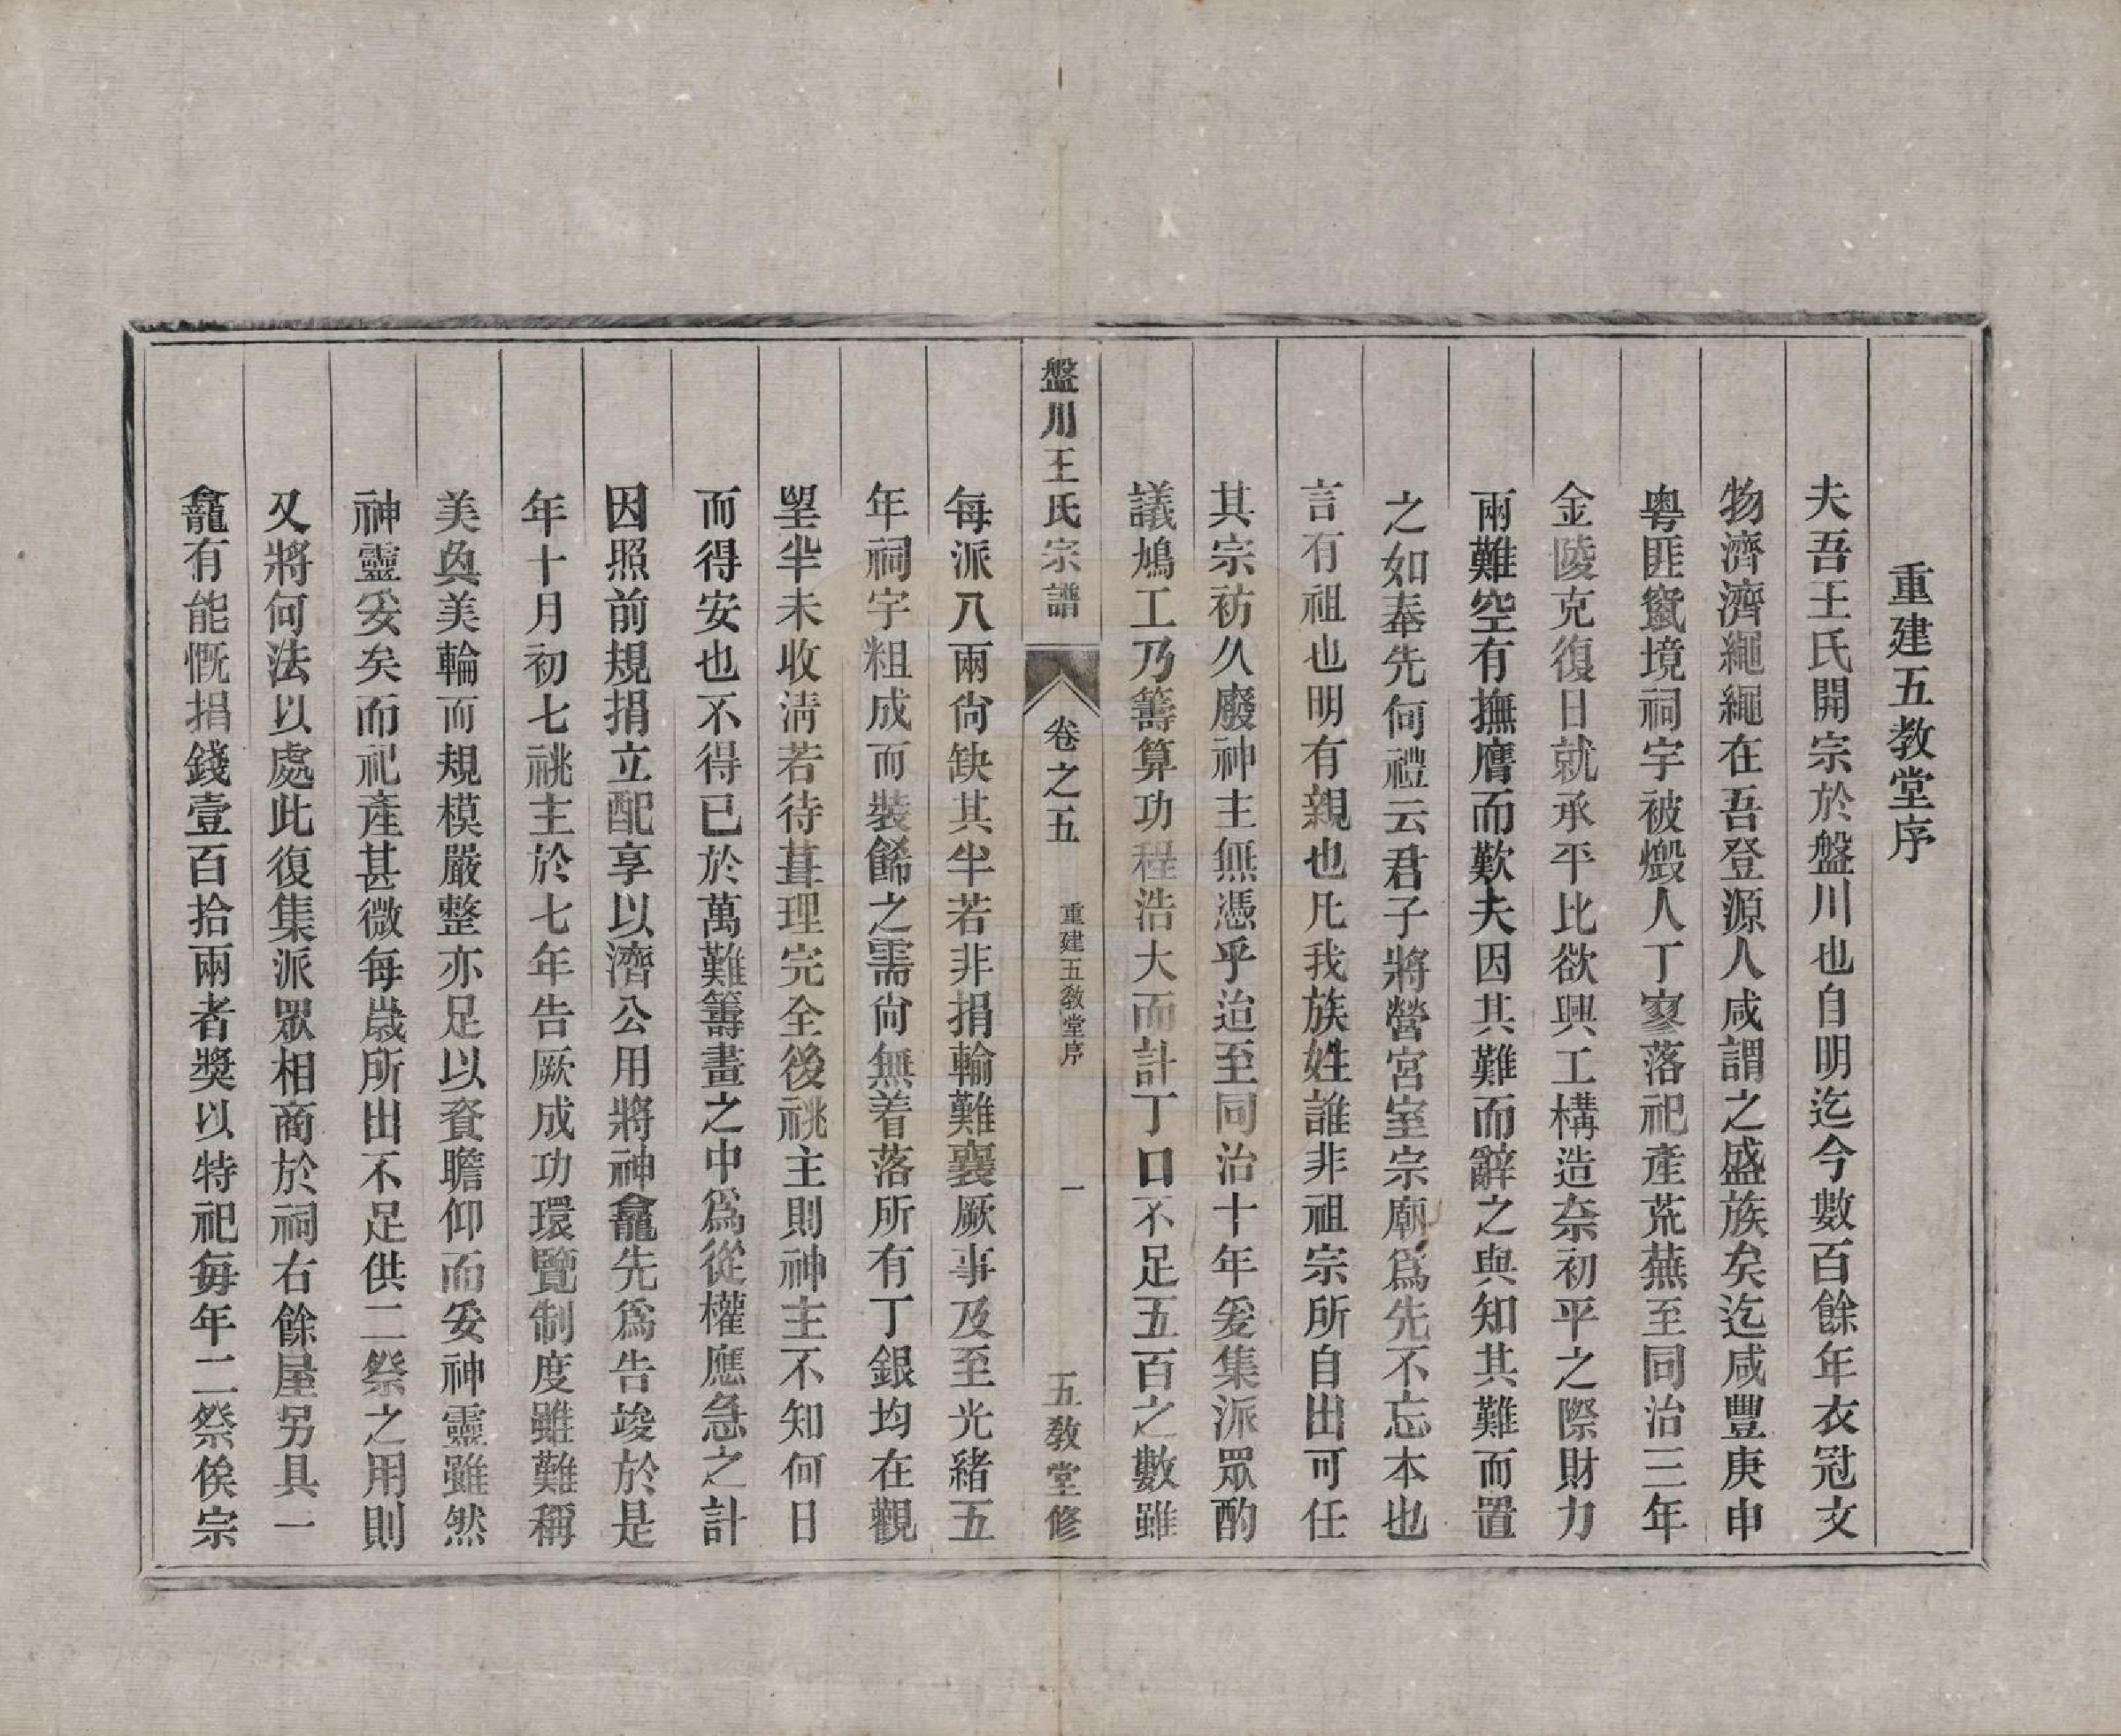 重建五教堂序
夫吾王氏開宗於盤川也自明迄今數百餘年衣冠文
物濟濟繩繩在吾登源人咸謂之盛族矣迄咸豐庚申
粵匪竄境祠宇被燬人丁寥落祀產荒蕪至同治三年
金陵克復日就承平比欲興工構造奈初平之際財力
兩難空有撫膺而歎夫因其難而辭之與知其難而置
之如奉先何禮云君子將營宮室宗廟爲先不忘本也
言有祖也明有親也凡我族姓誰非祖宗所自出可任
其宗祊久廢神主無憑乎迨至同治十年爰集派眾酌
議鳩工乃籌算功程浩大而計丁口不足五百之數雖
盤川王氏宗譜 卷之五 重建五教堂序 一 五教堂修
每派八兩尚缺其半若非捐輸難襄厥事及至光緒五
年祠宇粗成而裝餙之需尚無着落所有丁銀均在觀
望半未收淸若待葺理完全後祧主則神主不知何日
而得安也不得已於萬難籌畫之中爲從權應急之計
因照前規捐立配享以濟公用將神龕先爲告竣於是
年十月初七祧主於七年告厥成功環覽制度雖難稱
美奐美輪而規模嚴整亦足以資瞻仰而妥神靈雖然
神靈妥矣而祀產甚微每歲所出不足供二祭之用則
又將何法以處此復集派眾相商於祠右餘屋另具一
龕有能慨捐錢壹百拾兩者獎以特祀每年二祭俟宗